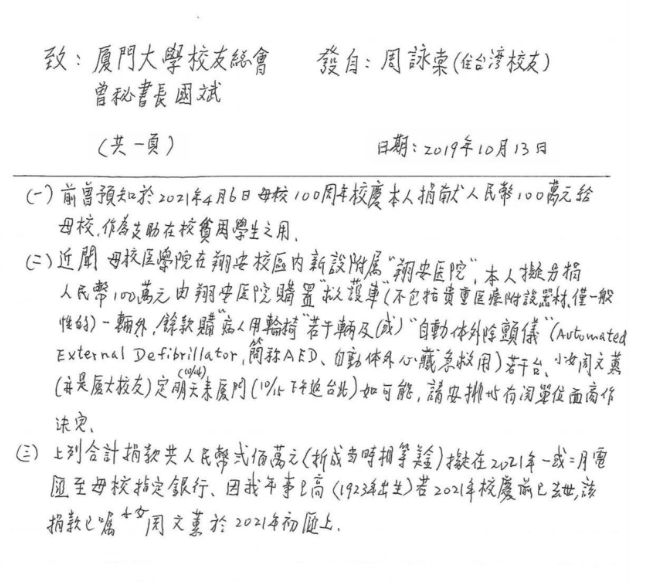 致：厦門大學校友総會 發自：周詠棠(住台湾校友)
曾秘書長國斌
(共一頁) 日期：2019年10月13日
(一) 前曾預知於2021年4月6日母校100周年校慶本人捐献人民幣100萬元給
母校，作為支助在校貧困學生之用.
(二) 近聞 母校医學院在翔安校區内新設附属"翔安医院"，本人擬另捐
人民幣100萬元由翔安医院購置"救護車"(不包括貴重医療附設器材，僅一般
性的)一輛外，餘款購"病人用輪椅"若干輛及(或)"自動体外除顫儀"(Automated
External Defibrillator，簡称AED、自動体外心臟急救用)若干台、小女周文薫
(亦是厦大校友)定明天(10/14)来厦門(10/15下午返台北)如可能，請安排与有関單位面商作
決定.
(三) 上列合計捐款共人民幣弍佰萬元(折成當時相等美金)擬在2021年一或二月電
匯至母校指定銀行、因我年事已高(1923年出生)若2021年校慶前已去世，該
捐款已嘱小女周文薫於2021年初匯上.